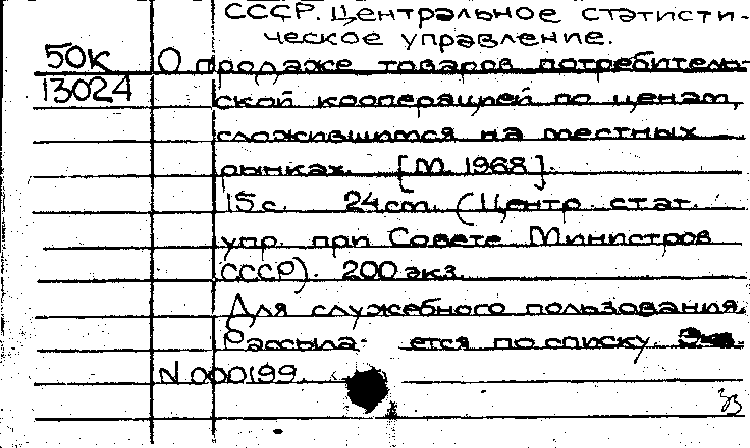 СССР. Центральное статисти-
ческое управление.
50к О продаже товаров потребитель-
13024 ской кооперацией по ценам,
сложившимся на местных
рынках. [М. 1968].
15 с. 24 cm. (Центр. стат.
упр. при Совете Министров
СССР). 200 экз.
Для служебного пользования.
Рассыла- ется по списку. Экз.
N 000199.